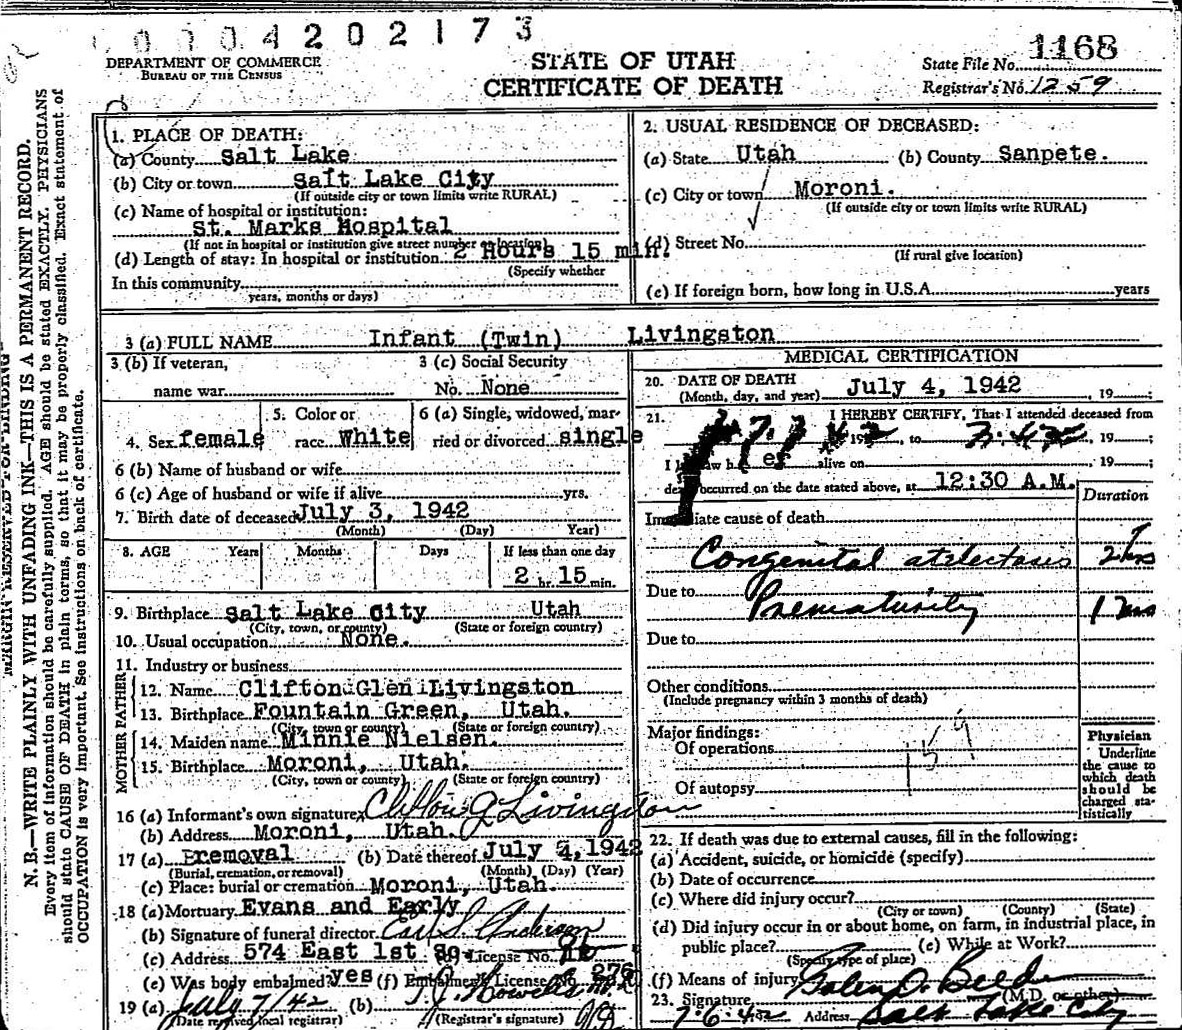 0004202173
DEPARTMENT OF COMMERCE
BUREAU OF THE CENSUS
STATE OF UTAH
CERTIFICATE OF DEATH
State File No. 1168
Registrar's No. 1259
N. B.—WRITE PLAINLY WITH UNFADING INK—THIS IS A PERMANENT RECORD.
Every item of information should be carefully supplied. AGE should be stated EXACTLY. PHYSICIANS
should state CAUSE OF DEATH in plain terms, so that it may be properly classified. Exact statement of
OCCUPATION is very important. See instructions on back of certificate.
MARGIN RESERVED FOR BINDING
1. PLACE OF DEATH:
(a) County Salt Lake
(b) City or town Salt Lake City
(If outside city or town limits write RURAL)
(c) Name of hospital or institution:
St. Marks Hospital
(If not in hospital or institution give street number or location)
(d) Length of stay: In hospital or institution 2 Hours 15 min.
(Specify whether
In this community
years, months or days)
2. USUAL RESIDENCE OF DECEASED:
(a) State Utah (b) County Sanpete.
(c) City or town Moroni.
(If outside city or town limits write RURAL)
(d) Street No.
(If rural give location)
(e) If foreign born, how long in U.S.A. years
3 (a) FULL NAME Infant (Twin) Livingston
3 (b) If veteran,
name war
3 (c) Social Security
No. None
4. Sex female
5. Color or
race White
6 (a) Single, widowed, mar-
ried or divorced single
6 (b) Name of husband or wife
6 (c) Age of husband or wife if alive yrs.
7. Birth date of deceased July 3, 1942
(Month) (Day) Year)
8. AGE Years Months Days If less than one day
2 hr. 15 min.
9. Birthplace Salt Lake City Utah
(City, town, or county) (State or foreign country)
10. Usual occupation None.
11. Industry or business
FATHER
12. Name Clifton Glen Livingston
13. Birthplace Fountain Green, Utah.
(City, town or county) (State or foreign country)
MOTHER
14. Maiden name Minnie Nielsen.
15. Birthplace Moroni, Utah.
(City, town or county) (State or foreign country)
16 (a) Informant's own signature x Clifton G Livingston
(b) Address Moroni, Utah.
17 (a) Removal (b) Date thereof July 4, 1942
(Burial, cremation, or removal) (Month) (Day) (Year)
(c) Place: burial or cremation Moroni, Utah.
18 (a) Mortuary Evans and Early
(b) Signature of funeral director Earl S Anderson
(c) Address 574 East 1st So. License No.
(e) Was body embalmed? yes (f) Embalmer's License No. 276
19 (a) July 7/42 (b) T. J. Howells M.D.
(Date received local registrar) (Registrar's signature)
MEDICAL CERTIFICATION
20. DATE OF DEATH
(Month, day, and year) July 4, 1942, 19 ;
21. I HEREBY CERTIFY, That I attended deceased from
, to , 19 ;
I last saw h er alive on , 19 ;
death occurred on the date stated above, at 12:30 A.M.
Duration
Immediate cause of death
Congenital atelectasis 2 hrs
Due to Prematurity
Due to
Other conditions
(Include pregnancy within 3 months of death)
Major findings:
Of operations
159
Of autopsy
Physician
Underline
the cause to
which death
should be
charged sta-
tistically
22. If death was due to external causes, fill in the following:
(a) Accident, suicide, or homicide (specify)
(b) Date of occurrence
(c) Where did injury occur?
(City or town) (County) (State)
(d) Did injury occur in or about home, on farm, in industrial place, in
public place? (e) While at Work?
(Specify type of place)
(f) Means of injury
23. Signature Galen O. Belden (M.D. or other)
7-6-42 Address Salt Lake City